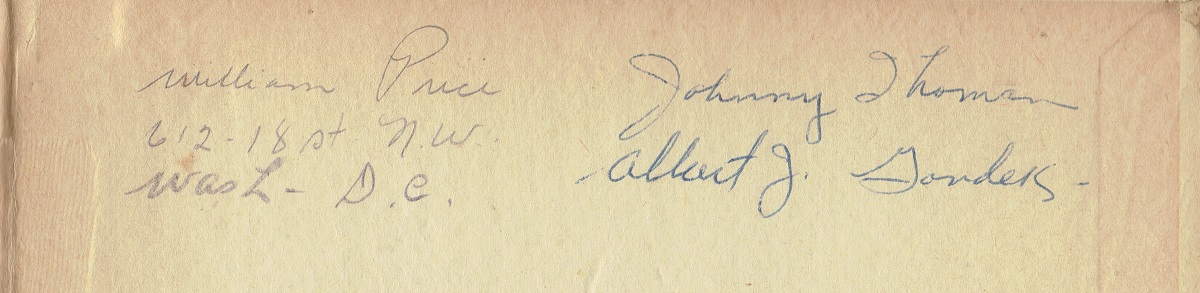 William Price
612-18 st N.W.
Wash - D.C.
Johnny Thoman
Albert J. Gondek -